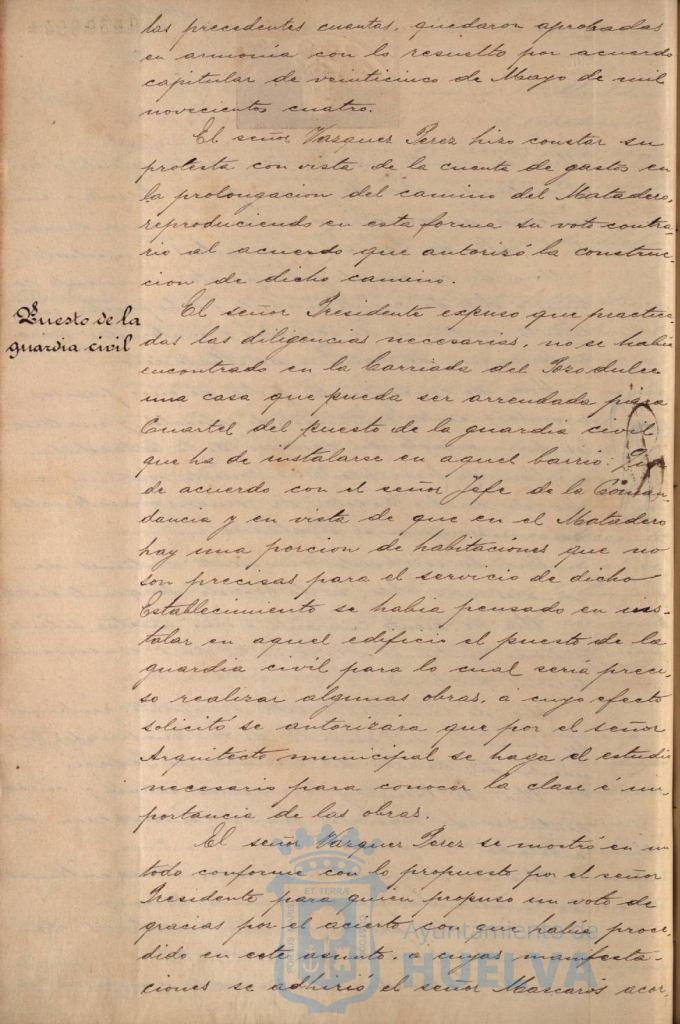 las precedentes cuentas, quedaron aprobadas
en armonía con lo resuelto por acuerdo
capitular de veinticinco de Mayo de mil
novecientos cuatro.
El señor Vazquez Perez hizo constar su
protesta con vista de la cuenta de gastos en
la prolongacion del camino del Matadero,
reproduciendo en esta forma su voto contra-
rio al acuerdo que autorizó la construc-
cion de dicho camino.
Puesto de la
guardia civil
El señor Presidente expuso que practica-
das las diligencias necesarias, no se habia
encontrado en la barriada del Pozo dulce
una casa que pueda ser arrendada para
Cuartel del puesto de la guardia civil
que ha de instalarse en aquel barrio:
de acuerdo con el señor Jefe de la Coman-
dancia y en vista de que en el Matadero
hay una porcion de habitaciones que no
son precisas para el servicio de dicho
Establecimiento se habia pensado en ins-
talar en aquel edificio el puesto de la
guardia civil para lo cual sería preci-
so realizar algunas obras, á cuyo efecto
solicitó se autorizára que por el señor
Arquitecto municipal se haga el estudio
necesario para conocer la clase é im-
portancia de las obras.
El señor Vazquez Perez se mostró en un
todo conforme con lo propuesto por el señor
Presidente para quien propuso un voto de
gracias por el acierto con que habia proce-
dido en este asunto, a cuyas manifesta-
ciones se adhirió el señor Mascarós acor-
Ayuntamiento de
HUELVA